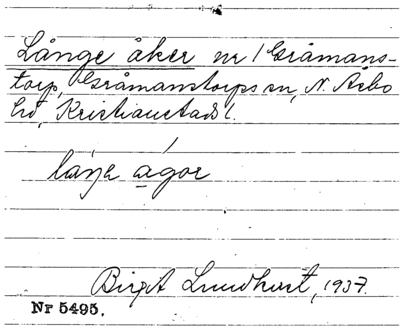 Långe åker nr 1 Gråmans-
torp, Gråmanstorps sn, N. Åsbo
hd, Kristianstads l.
láŋa ǫgor
Birgit Lundkvist, 1937.
Nr 5495.